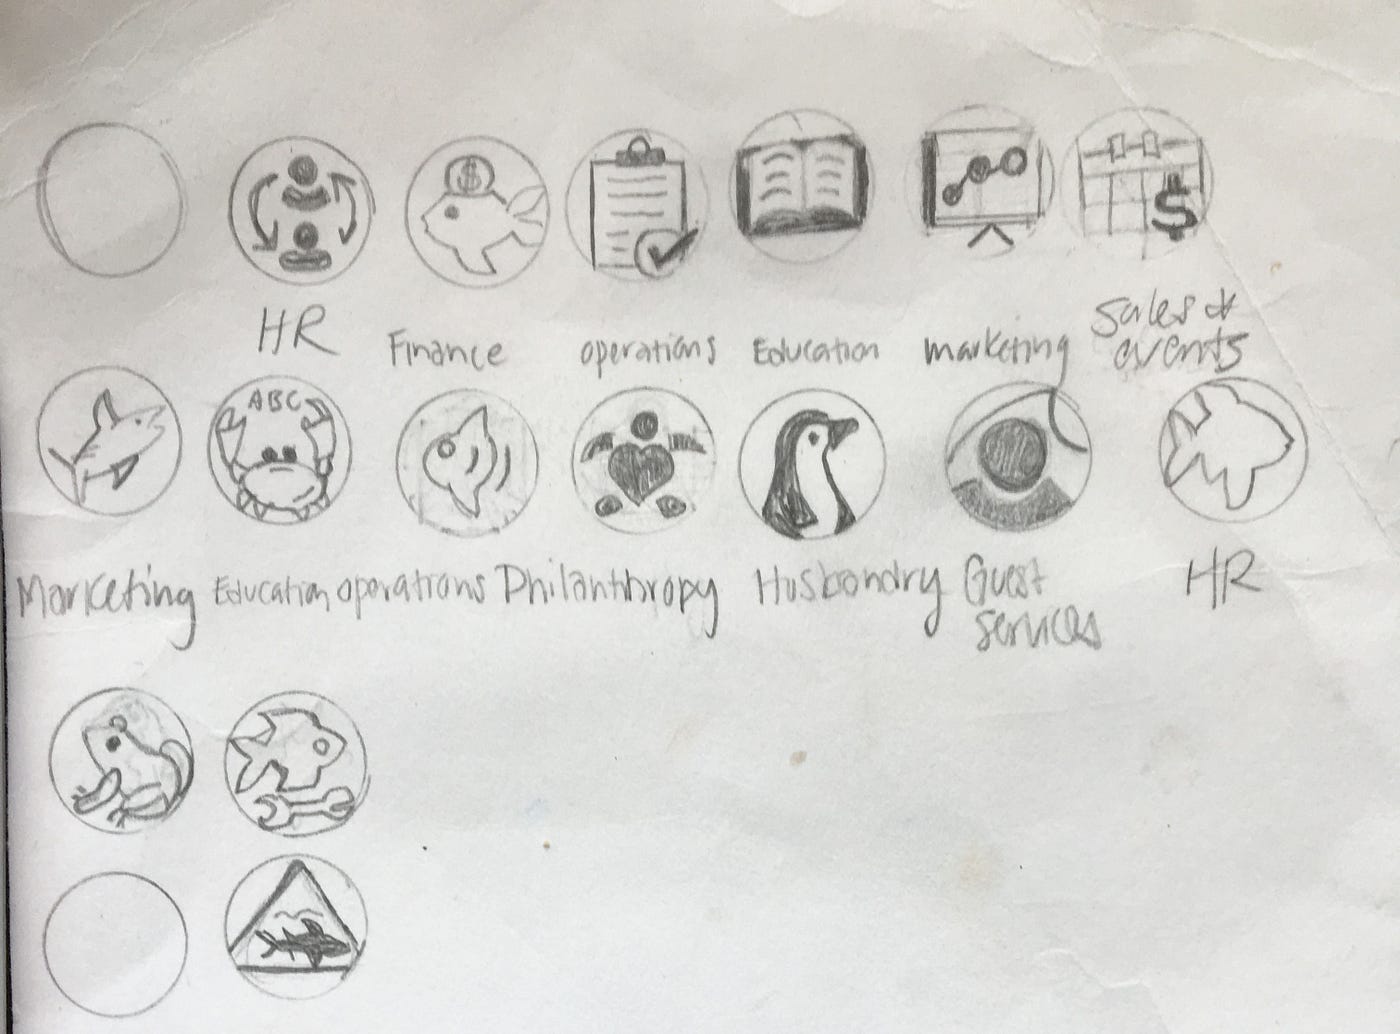 $
$
HR
Finance
operations
Education
marketing
Sales &
events
ABC
Marketing
Education
operations
Philanthropy
Husbondry
Guest
services
HR